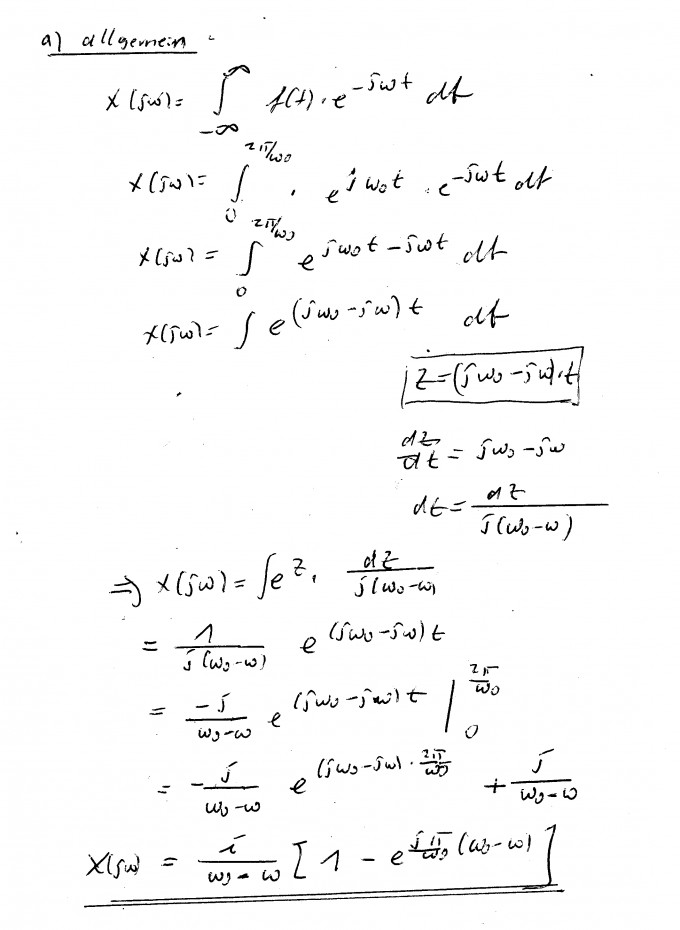 a) allgemein
X(jω) = ∫_{-∞}^{∞} f(t) · e^{-jωt} dt
X(jω) = ∫_{0}^{2π/ω0} · e^{jω0t} · e^{-jωt} dt
X(jω) = ∫_{0}^{2π/ω0} e^{jω0t - jωt} dt
X(jω) = ∫ e^{(jω0 - jω)t} dt
z = (jω0 - jω)·t
dz/dt = jω0 - jω
dt = dz / j(ω0-ω)
⇒ X(jω) = ∫ e^z · dz / j(ω0-ω)
= 1 / j(ω0-ω) e^{(jω0 - jω)t}
= -j / ω0-ω e^{(jω0 - jω)t} |_{0}^{2π/ω0}
= -j / ω0-ω e^{(jω0 - jω) · 2π/ω0} + j / ω0-ω
X(jω) = j / ω0-ω [1 - e^{j π/ω0 (ω0-ω)}]